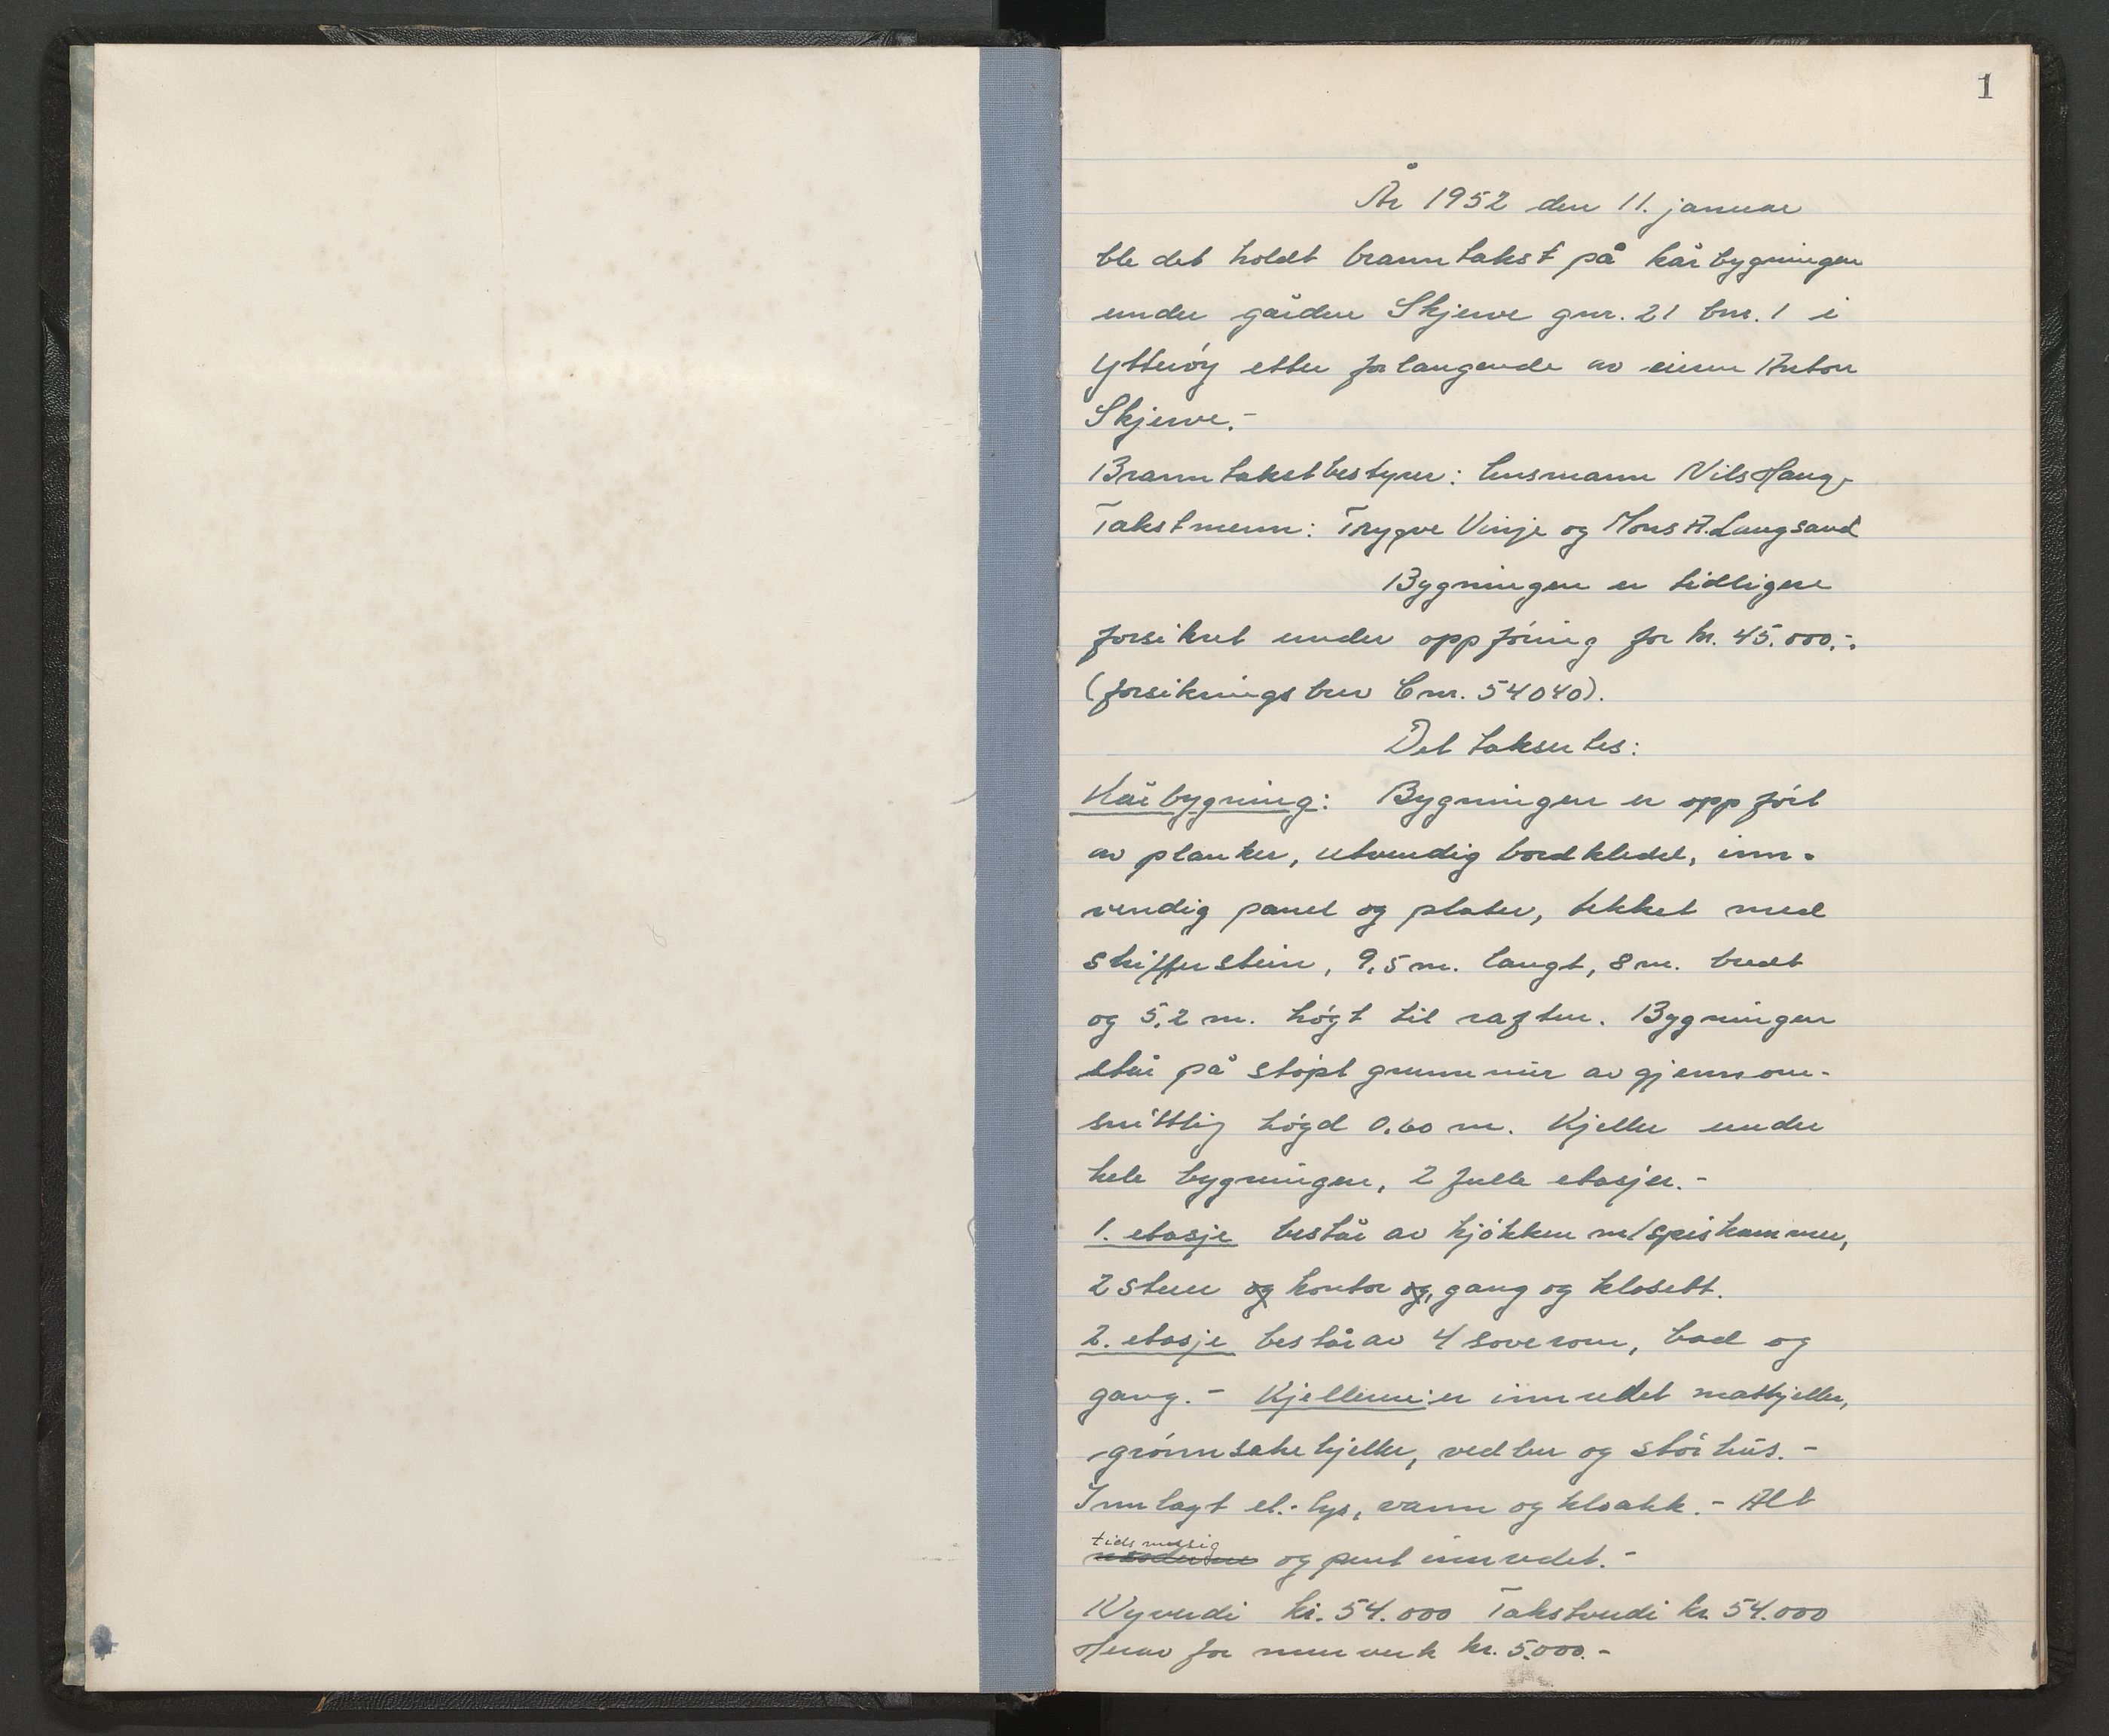 1
År 1952 den 11. januar
ble det holdt branntakst på kårbygningen
under gården Skjerve gnr. 21 bnr. 1 i
Ytterøy etter forlangende av eieren Anton
Skjerve.-
Branntakstbestyrer: lensmann Nils Haug.
Takstmenn: Trygve Vinje og Mons A. Langsand
Bygningen er tidligere
forsikret under oppføring for kr. 45.000.-
(forsikringsbrev C nr. 54040).
Det taksertes:
Kårbygning: Bygningen er oppført
av planker, utvendig bordkledd, inn-
vendig panel og plater, tekket med
skifferstein, 9,5 m. langt, 8 m. bredt
og 5,2 m. høgt til raften. Bygningen
står på støpt grunnmur av gjennom-
snittlig høgd 0.60 m. Kjeller under
hele bygningen, 2 fulle etasjer.-
1. etasje består av kjøkken m/spiskammer,
2 stuer og kontor og, gang og klosett.
2. etasje består av 4 soverom, bad og
gang.- Kjelleren: er innredet matkjeller,
grønnsakskjeller, vedbu og størhus.-
Innlagt el.- lys, vann og kloakk.- Alt
tidsmessig
moderne og pent innredet.-
Nyverdi kr. 54.000 Takstverdi kr. 54.000
Herav for murverk kr. 5.000.-